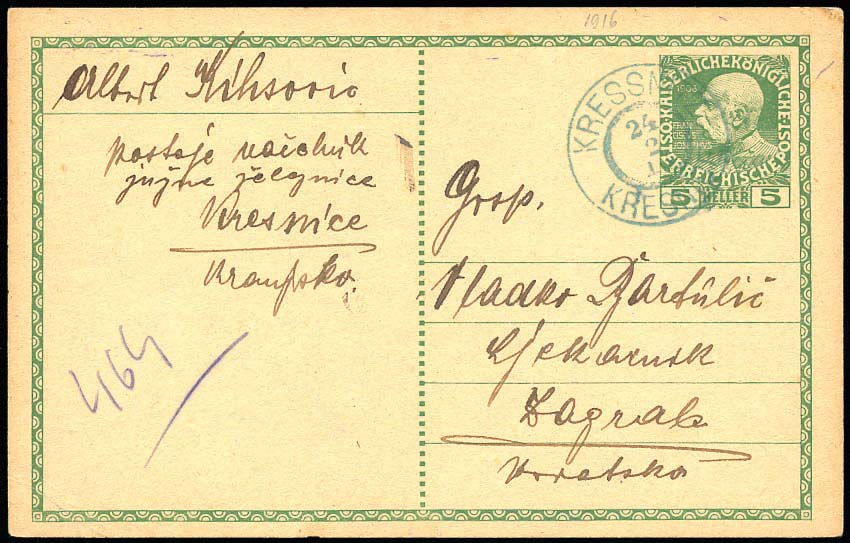 1916
Albert
postaje načelnik
južne željeznice
Kresnice
Kranjsko.
464
KRESSN
24
KRESN
KAISERLICHEKÖNIGLICHE
ÖSTERREICHISCHE POST
1908
5 HELLER 5
Gosp.
Vladko Bartulić
Ljekarnik
Zagreb
Hrvatska